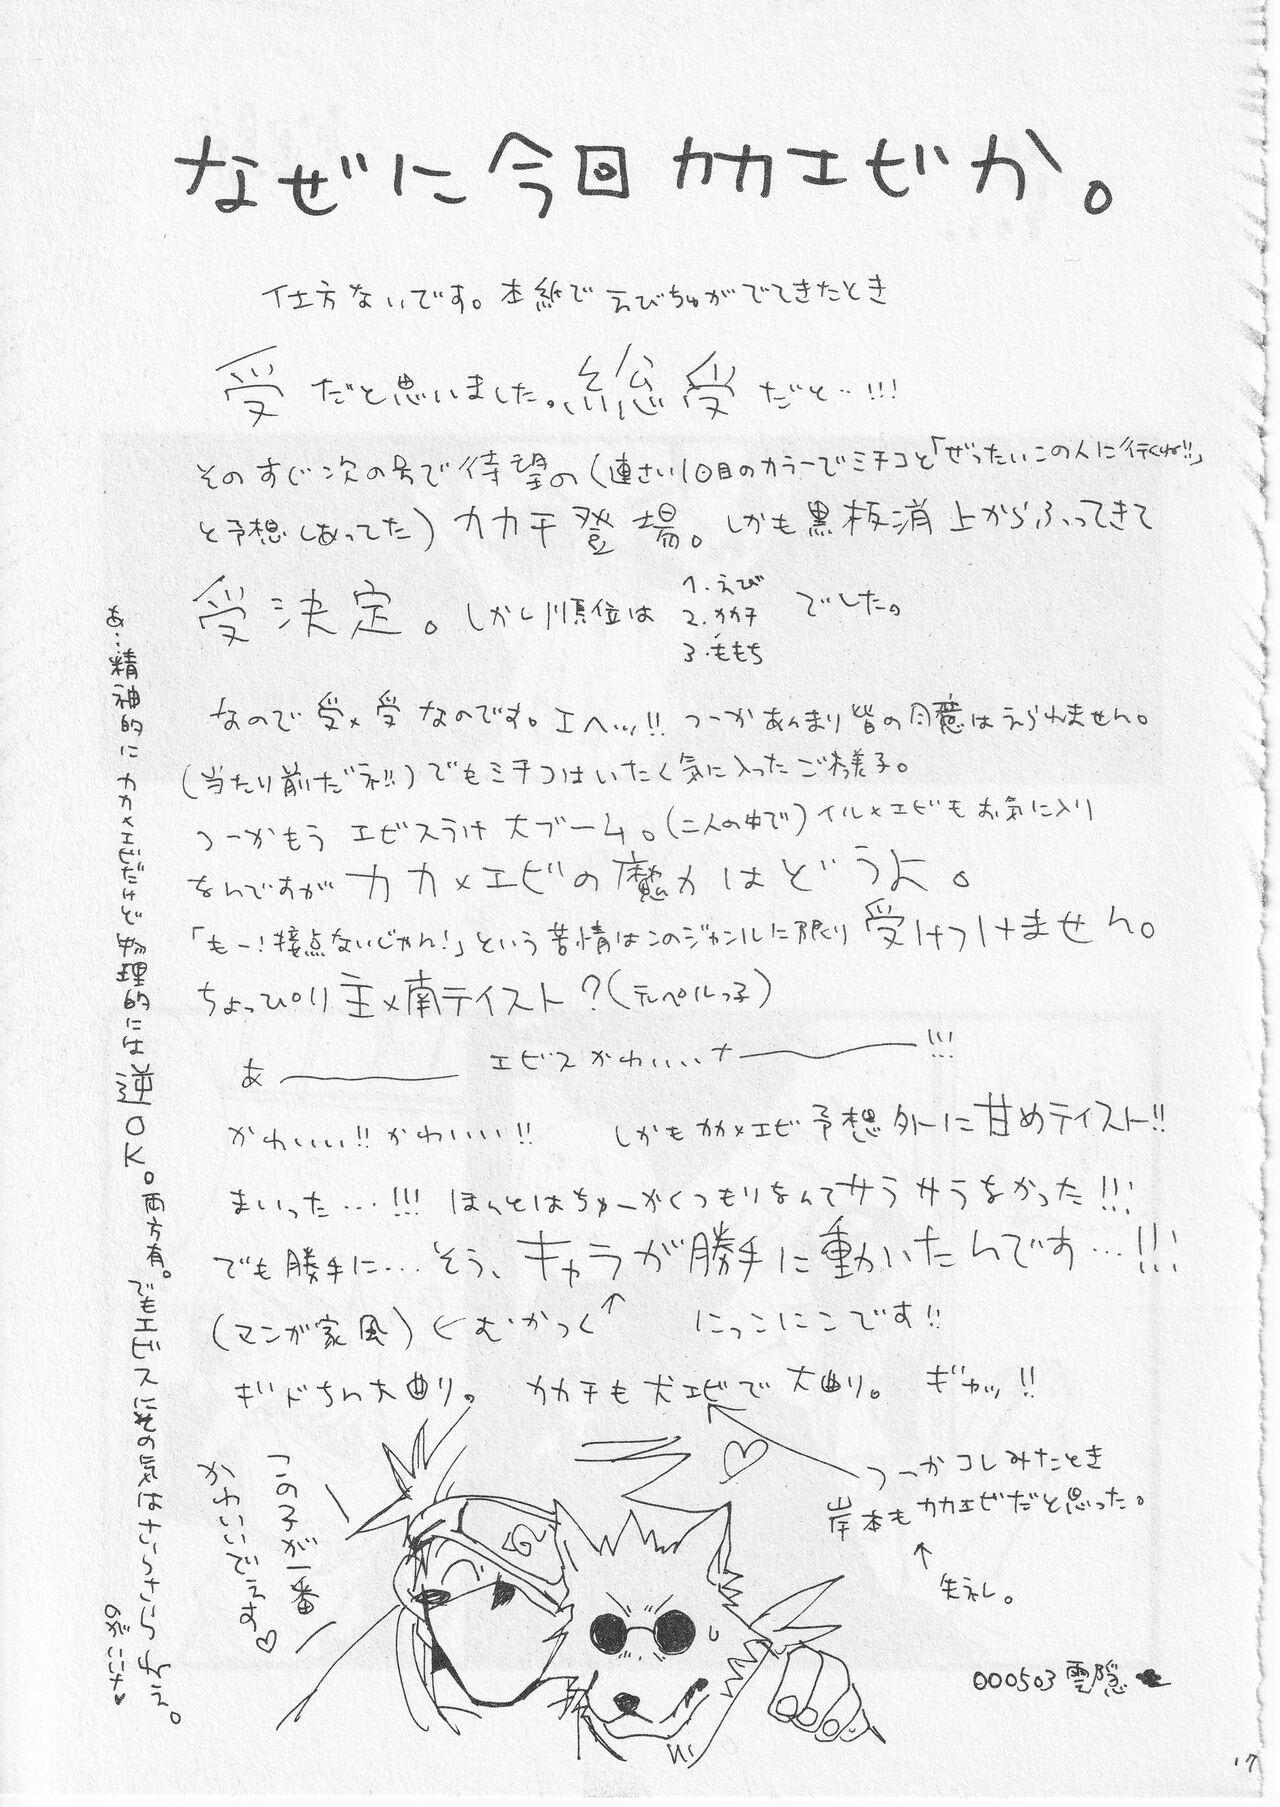 なぜに今回カカエビか。
仕方ないです。本紙でえびちゅがでてきたとき
受だと思いました。総受だと…!!!
そのすぐ次の号で待望の(連さい1回目のカラーでミチコと「ぜったいこの人に行くね!!」
と予想しあってた)カカチ登場。しかも黒板消上からふってきて
受決定。しかし順位は
1.えび
2.カカチ
3.ももち
でした。
なので受×受なのです。エヘッ!!つーかあんまり皆の同意はえられません。
(当たり前だネ!!)でもミチコはいたく気に入ったご様子。
つーかもうエビスうけ大ブーム。(二人の中で)イル×エビもお気に入り
なんですがカカ×エビの魔力はどうよ。
「もー!接点ないじゃん!」という苦情はこのジャンルに限り受けつけません。
ちょっぴり主×南テイスト?(テレペルっ子)
あ――― エビスかわいいナ―――!!!
かわいい!!かわいい!! しかもカカ×エビ予想外に甘めテイスト!!
まいった…!!! ほんとはちゅーかくつもりなんてサラサラなかった!!!
でも勝手に…そう、キャラが勝手に動いたんです…!!!
(マンガ家風)←むかつく にっこにこです!!
ギドちん大曲り。カカチも犬エビで大曲り。ギャッ!!
つーかコレみたとき
岸本もカカエビだと思った。
↑
失ネし。
この子が一番
かわいいでえす♡
000503 雲隠
あ…精神的にカカ×エビだけど物理的には逆OK。両方有。でもエビスにその気はさらさらねえ。
のがここナ♥
17